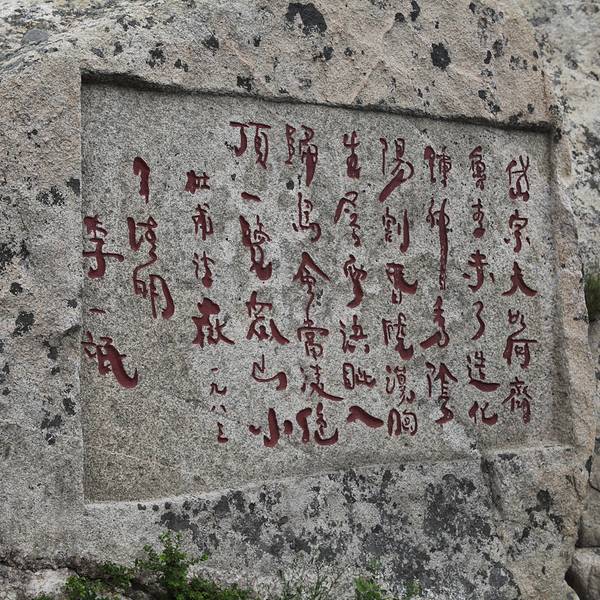 岱宗夫如何齊
魯青未了造化
鍾神秀陰
陽割昏曉蕩胸
生層雲決眦入
歸鳥會當凌絕
頂一覽衆山小
杜甫嶽一九八三
年清明
李一氓